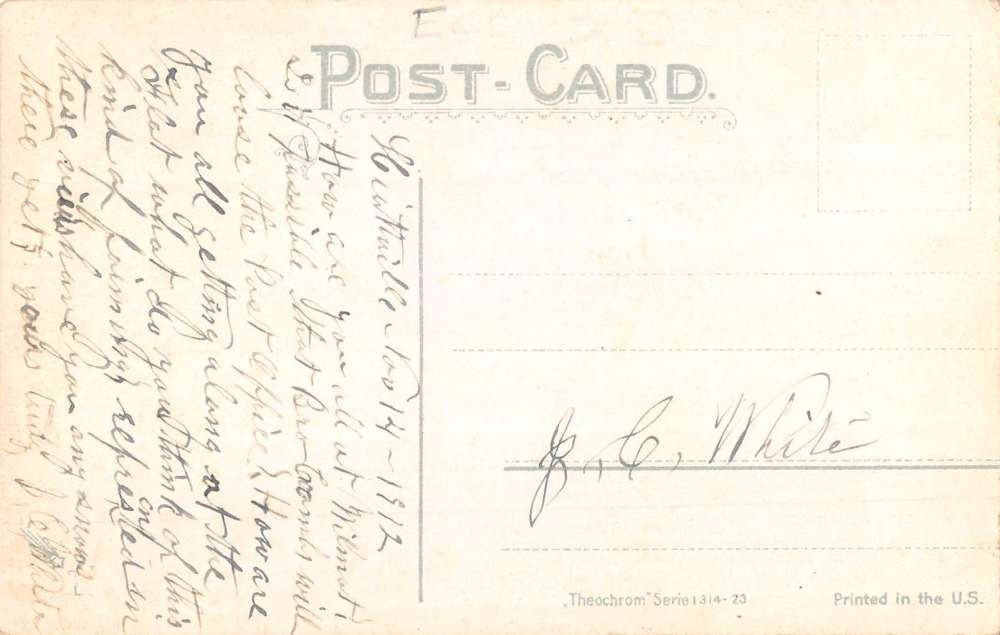 E
POST-CARD.
Nov 14 - 1912
How are you all at Wilmot,
Is it Possible that Bro Toombs will
loose the Post Office? How are
you all getting along at the
what do you think of this
kind of farming, represented in
these views have you any snow
there yet? yours truly J. C. White
J. C. White
"Theochrom" Serie 1314-23
Printed in the U.S.